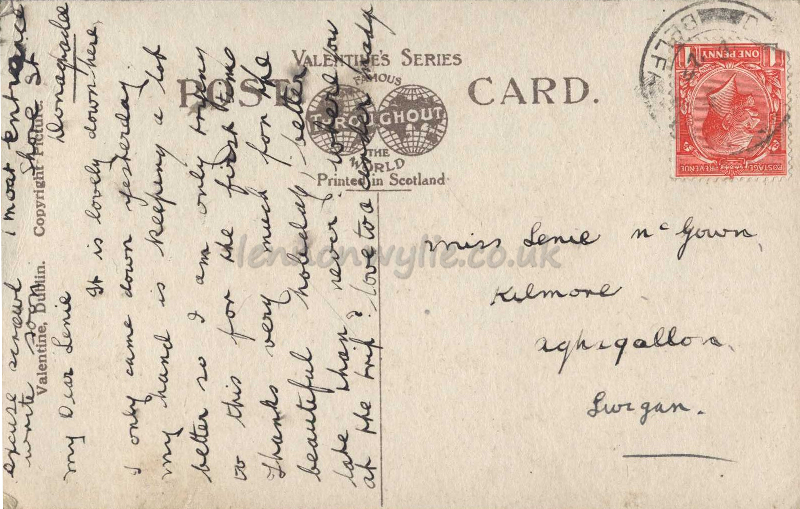 1 moat Entrance
Shore St
Donaghadee
My Dear Lenie
It is lovely down here,
I only came down yesterday.
My hand is keeping a lot
better so I am only trying
to this for the first time
Thanks very much for the
beautiful holiday, better
late than never, where you
at the trip? love to all
excuse scrawl
write soon
VALENTINE'S SERIES
POST CARD.
FAMOUS
THROUGHOUT
THE
WORLD
Printed in Scotland
Valentine, Dublin. Copyright Picture.
Miss Lenie McGown,
Kilmore,
Aghagallon,
Lurgan.
BELFA
POSTAGE REVENUE
ONE PENNY
1 1
lennonwylie.co.uk